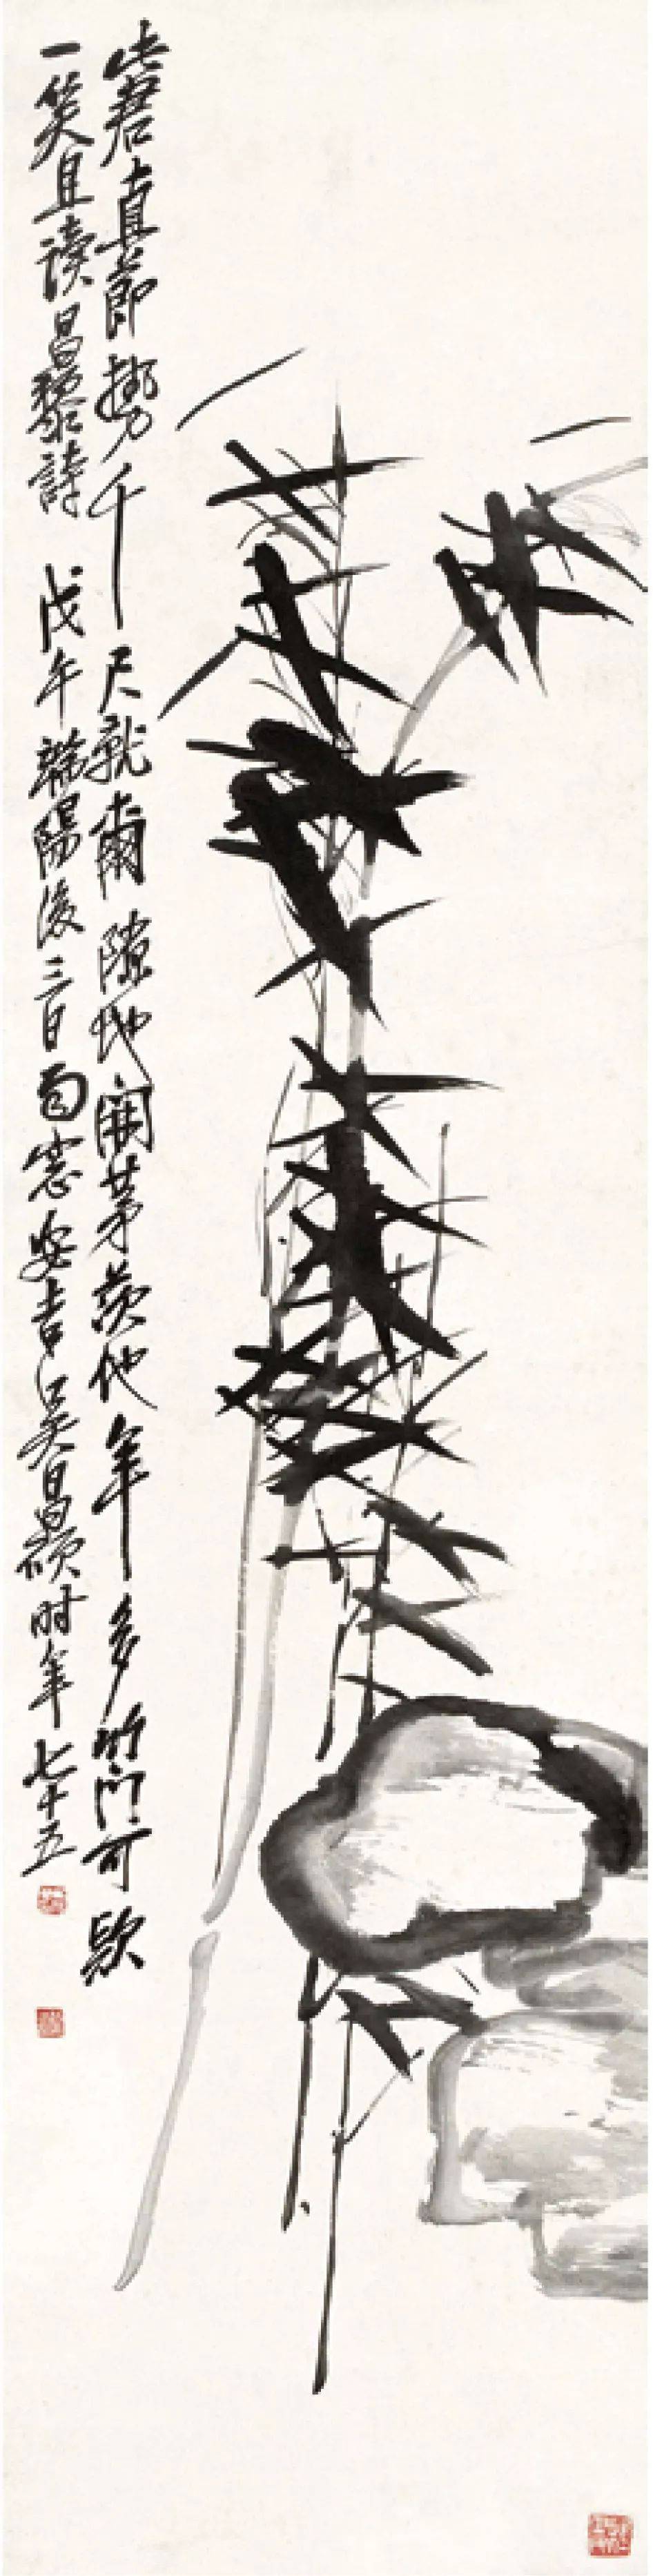 此君直節勢千尺就爾隙地開茅茨他年多竹門可款
一笑且讀昌黎詩 戊午端陽後三日雨窓安吉吳昌碩時年七十五